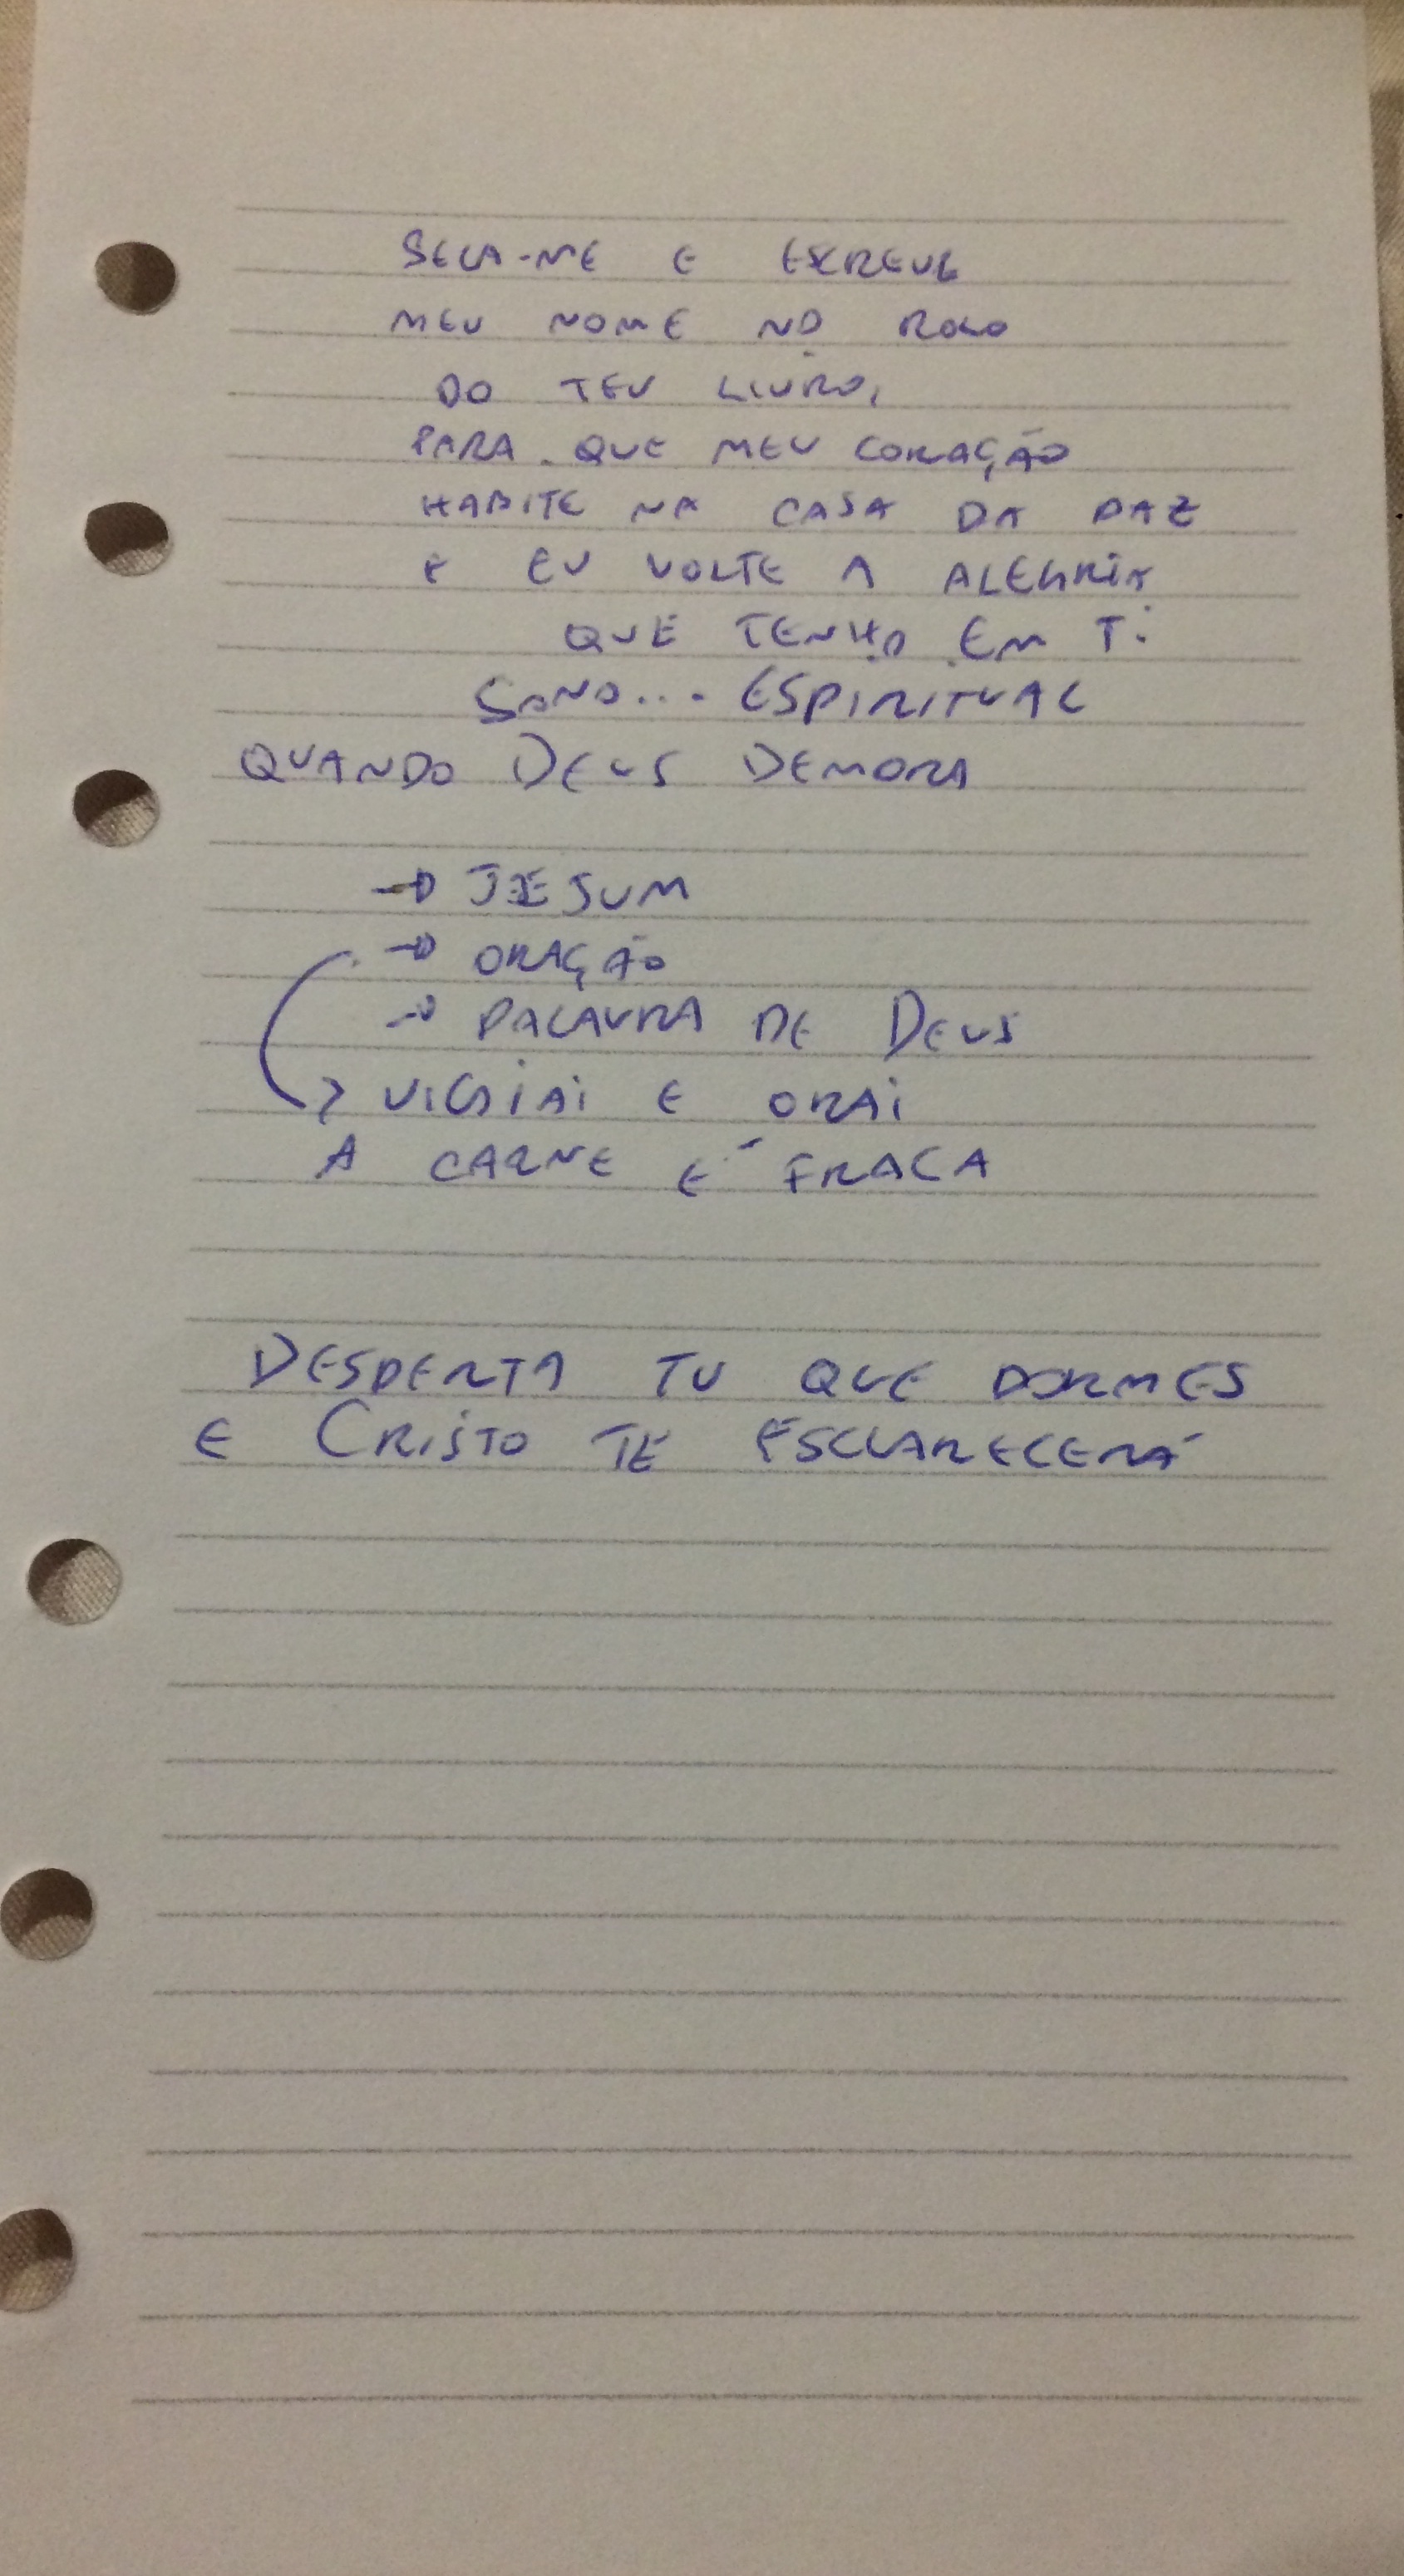 SELA-ME E ESCREVE
MEU NOME NO ROLO
DO TEU LIVRO,
PARA QUE MEU CORAÇÃO
HABITE NA CASA DA PAZ
E EU VOLTE A ALEGRIA
QUE TENHO EM Ti
SONO... ESPIRITUAL
QUANDO DEUS DEMORA
→ JEJUM
→ ORAÇÃO
→ PALAVRA DE DEUS
> VIGIAI E ORAI
A CARNE É FRACA
DESPERTA TU QUE DORMES
E CRISTO TE ESCLARECERÁ